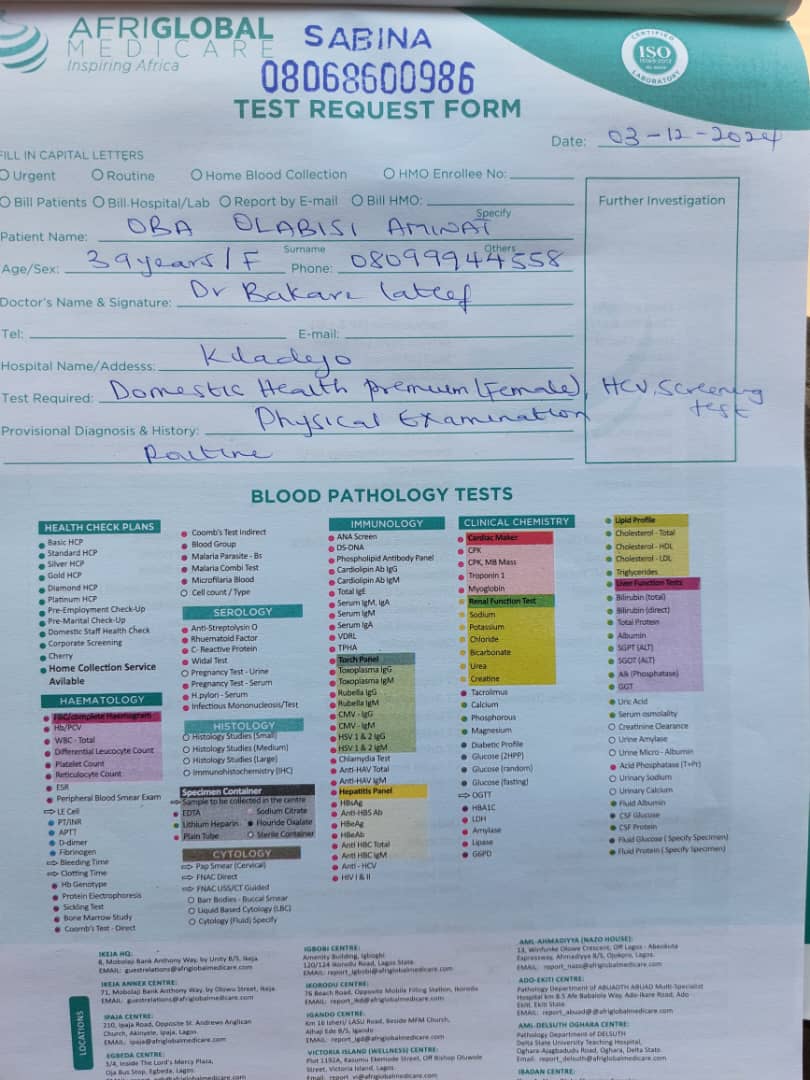 AFRIGLOBAL
MEDICARE
Inspiring Africa
SABINA
08068600986
CERTIFIED
ISO
LABORATORY
TEST REQUEST FORM
Date: 03-12-2024
FILL IN CAPITAL LETTERS
Urgent Routine Home Blood Collection HMO Enrollee No:
Bill Patients Bill Hospital/Lab Report by E-mail Bill HMO:
Specify
Further Investigation
Patient Name: OBA OLABISI AMINAT
Surname Others
Age/Sex: 39 years/F Phone: 08099944558
Doctor's Name & Signature: Dr Bakare lateef
Tel: E-mail:
Hospital Name/Addesss: Kiladejo
Test Required: Domestic Health premium (Female), HCV, Screening test
Provisional Diagnosis & History: Physical Examination
Routine
BLOOD PATHOLOGY TESTS
HEALTH CHECK PLANS
Basic HCP
Standard HCP
Silver HCP
Gold HCP
Diamond HCP
Platinum HCP
Pre-Employment Check-Up
Pre-Marital Check-Up
Domestic Staff Health Check
Corporate Screening
Cherry
Home Collection Service
Avilable
HAEMATOLOGY
FBC/complete Haemogram
Hb/PCV
WBC - Total
Differential Leucocyte Count
Platelet Count
Reticulocyte Count
ESR
Peripheral Blood Smear Exam
LE Cell
PT/INR
APTT
D-dimer
Fibrinogen
Bleeding Time
Clotting Time
Hb Genotype
Protein Electrophoresis
Sickling Test
Bone Marrow Study
Coomb's Test - Direct
Coomb's Test Indirect
Blood Group
Malaria Parasite - Bs
Malaria Combi Test
Microfilaria Blood
Cell count / Type
SEROLOGY
Anti-Streptolysin O
Rhuematoid Factor
C- Reactive Protein
Widal Test
Pregnancy Test - Urine
Pregnancy Test - Serum
H.pylon - Serum
Infectious Mononucleosis/Test
HISTOLOGY
Histology Studies (Small)
Histology Studies (Medium)
Histology Studies (Large)
Immunohistochemistry (IHC)
Specimen Container
Sample to be collected in the centre
EDTA Sodium Citrate
Lithium Heparin Flouride Oxalate
Plain Tube Sterile Container
CYTOLOGY
Pap Smear (Cervical)
FNAC Direct
FNAC USS/CT Guided
Barr Bodies - Buccal Smear
Liquid Based Cytology (LBC)
Cytology (Fluid) Specify
IMMUNOLOGY
ANA Screen
DS-DNA
Phospholipid Antibody Panel
Cardiolipin Ab IgG
Cardiolipin Ab IgM
Total IgE
Serum IgM, IgA
Serum IgM
Serum IgA
VDRL
TPHA
Torch Panel
Toxoplasma IgG
Toxoplasma IgM
Rubella IgG
Rubella IgM
CMV - IgG
CMV - IgM
HSV 1 & 2 IgG
HSV 1 & 2 IgM
Chlamydia Test
Anti-HAV Total
Anti-HAV IgM
Hepatitis Panel
HBsAg
Anti-HBS Ab
HBeAg
HBeAb
Anti HBC Total
Anti HBC IgM
Anti - HCV
HIV I & II
CLINICAL CHEMISTRY
Cardiac Maker
CPK
CPK, MB Mass
Troponin 1
Myoglobin
Renal Function Test
Sodium
Potassium
Chloride
Bicarbonate
Urea
Creatine
Tacrolimus
Calcium
Phosphorous
Magnesium
Diabetic Profile
Glucose (2HPP)
Glucose (random)
Glucose (fasting)
OGTT
HBA1C
LDH
Amylase
Lipase
G6PD
Lipid Profile
Cholesterol - Total
Cholesterol - HDL
Cholesterol - LDL
Triglycerides
Liver Function Tests
Bilirubin (total)
Bilirubin (direct)
Total Protein
Albumin
SGPT (ALT)
SGOT (ALT)
Alk (Phosphatase)
GGT
Uric Acid
Serum osmolality
Creatinine Clearance
Urine Amylase
Urine Micro - Albumin
Acid Phosphatase (T+Pr)
Urinary Sodium
Urinary Calcium
Fluid Albumin
CSF Glucose
CSF Protein
Fluid Glucose ( Specify Specimen)
Fluid Protein ( Specify Specimen)
LOCATIONS
IKEJA HQ:
8, Mobolaji Bank Anthony Way, by Unity B/S, Ikeja.
EMAIL: guestrelations@afriglobalmedicare.com
IKEJA ANNEX CENTRE:
71, Mobolaji Bank Anthony Way, by Olowu Street, Ikeja.
EMAIL: guestrelations@afriglobalmedicare.com
IPAJA CENTRE:
210, Ipaja Road, Opposite St. Andrews Anglican
Church, Akinyele, Ipaja, Lagos.
EMAIL: ipaja@afriglobalmedicare.com
EGBEDA CENTRE:
3/4, Inside The Lord's Mercy Plaza,
Oja Bus Stop, Egbeda, Lagos.
IGBOBI CENTRE:
Amenity Building, Igbobi
120/124 Ikorodu Road, Lagos State.
EMAIL: report_igbobi@afriglobalmedicare.com
IKORODU CENTRE:
76 Beach Road, Opposite Mobile Filling Station, Ikorodu
EMAIL: report_ikd@afriglobalmedicare.com
IGANDO CENTRE:
Km 16 Isheri/ LASU Road, Beside MFM Church,
Alhaji Ede B/S, Igando
EMAIL: report_igd@afriglobalmedicare.com
VICTORIA ISLAND (WELLNESS) CENTRE:
Plot 1192A, Kasumu Ekemode Street, Off Bishop Oluwole
Street, Victoria Island, Lagos.
Email: report_vi@afriglobalmedicare.com
AML-AHMADIYYA (NAZO HOUSE):
13, Winfunke Olowe Crescent, Off Lagos - Abeokuta
Expressway, Ahmadiyya B/S, Ojokoro, Lagos.
EMAIL: report_nazo@afriglobalmedicare.com
ADO-EKITI CENTRE:
Pathology Department of ABUADTH ABUAD Multi-Specialist
Hospital km 8.5 Afe Babalola Way, Ado-Ikare Road, Ado
Ekiti, Ekiti State.
EMAIL: report_abuad@afriglobalmedicare.com
AML-DELSUTH OGHARA CENTRE:
Pathology Department of DELSUTH
Delta State University Teaching Hospital,
Oghara-Ajagbadudu Road, Oghara, Delta State.
Email: report_delsuth@afriglobalmedicare.com
IBADAN CENTRE: